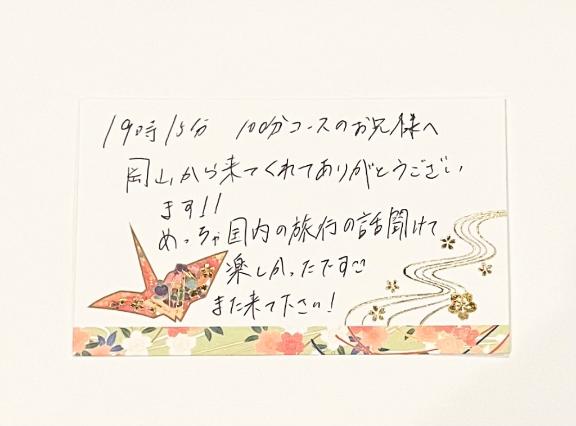 19時15分 100分コースのお兄様へ
岡山から来てくれてありがとうござい
ます!!
めっちゃ国内の旅行の話聞けて
楽しかったです
また来て下さい!